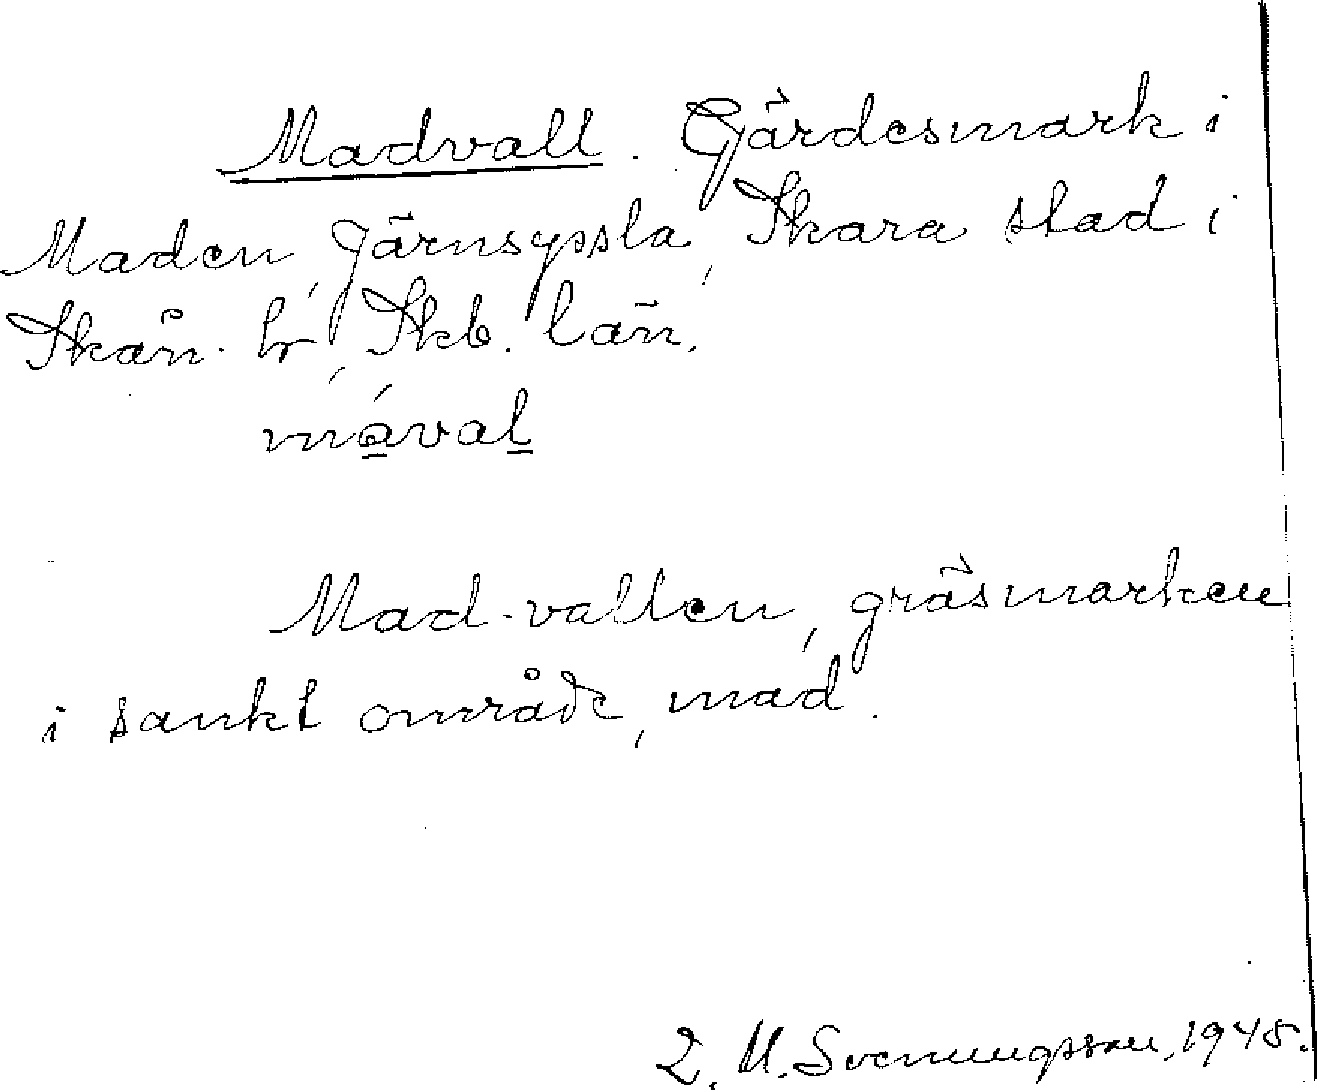 Madvall. Gärdesmark i
Maden, Järnsyssla, Skara stad i
Skån. hr, Skb. län.
mával
Mad-vallen, gräsmarken
i sankt område, mad.
M. Svenungsson, 1948.